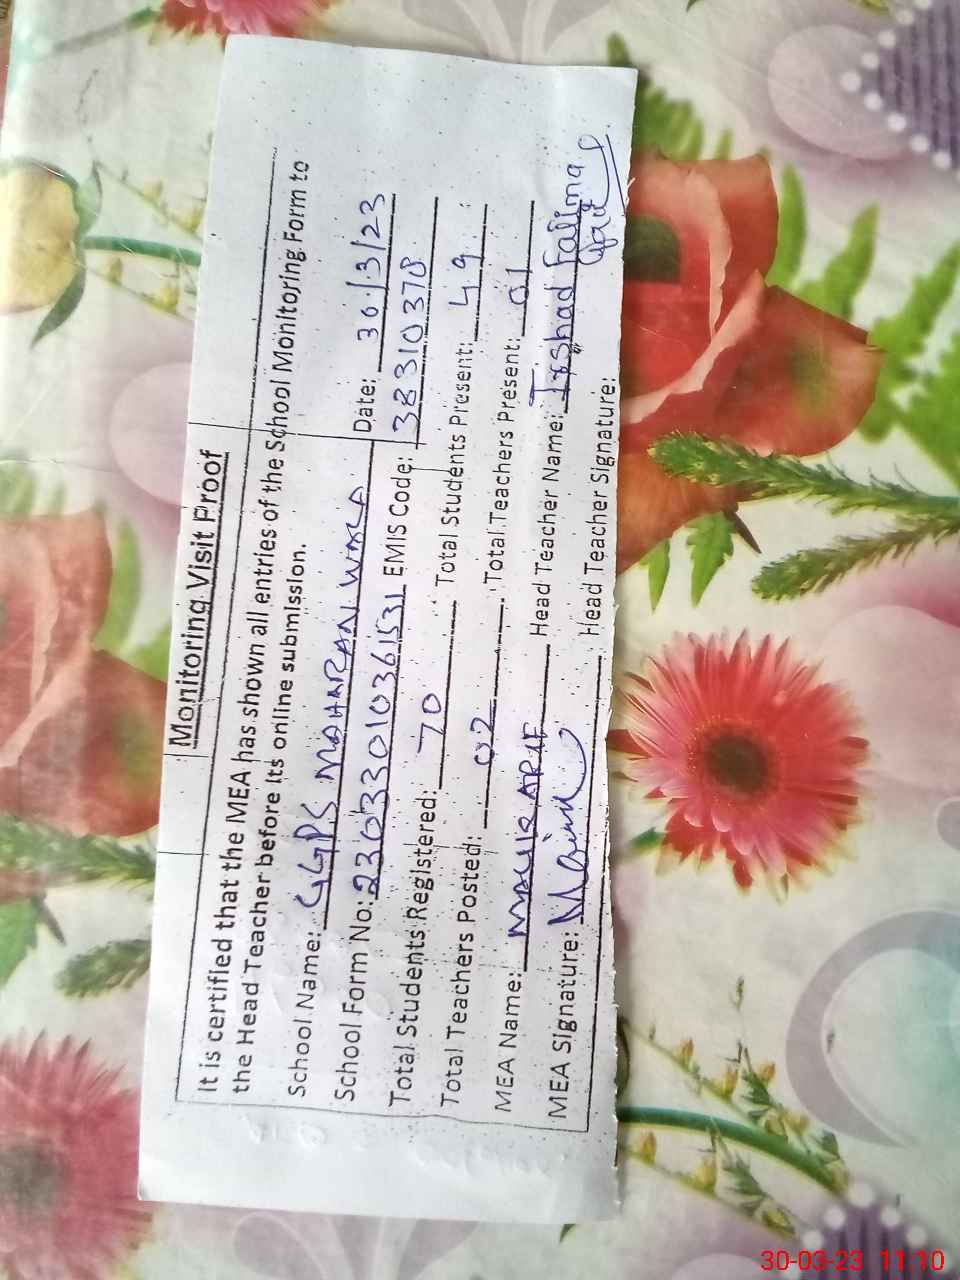 Monitoring Visit Proof
It is certified that the MEA has shown all entries of the School Monitoring Form to
the Head Teacher before its online submission.
School Name: GGPS MAHARAN WALA Date: 30/3/23
School Form No: 23033010361531 EMIS Code: 38310378
Total Students Registered: 70 Total Students Present: 49
Total Teachers Posted: 02 Total Teachers Present: 01
MEA Name: Head Teacher Name: Irshad Fatima
MEA Signature: Head Teacher Signature:
30-03-23 11:10